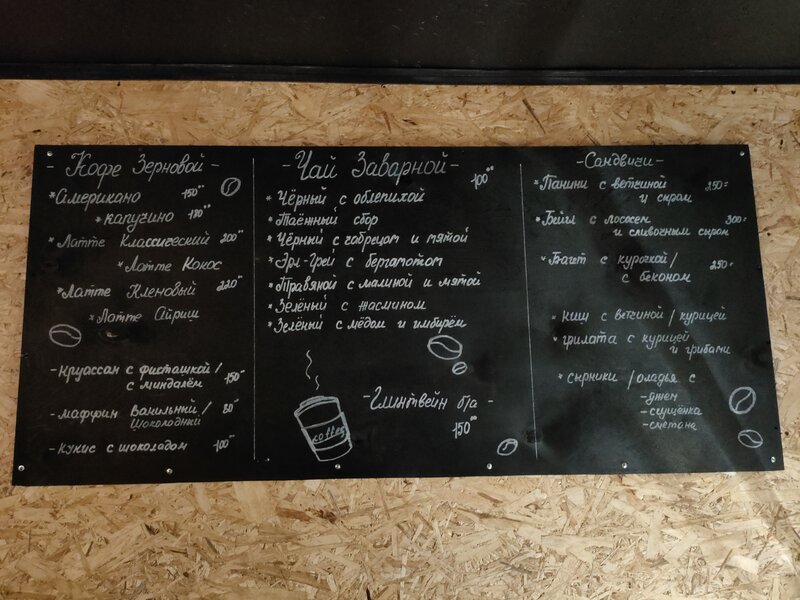 - Кофе Зерновой -
* Американо 150°°
* капучино 180°°
* Латте Классический 200°°
* Латте Кокос
* Латте Кленовый 220°°
* Латте Айриш
- Круассан с фисташкой /
с миндалём 150°
- маффин Ванильный / 80°
Шоколадный
- кукис с шоколадом 100°°
- Чай Заварной -
100°°
* Чёрный с облепихой
* Таёжный сбор
* Чёрный с чабрецом и мятой
* Эрл-Грей с бергамотом
* Травяной с малиной и мятой
* Зелёный с жасмином
* Зелёный с мёдом и имбирём
- Глинтвейн б/а -
150°°
coffee
- Сандвичи -
* Панини с ветчиной 250=
и сыром
* Бейгл с лососем 300=
и сливочным сыром
* Багет с курочкой / 250=
с беконом
* киш с ветчиной / курицей
* грилата с курицей
и грибами
* сырники / оладья с
- джем
- сгущёнка
- сметана